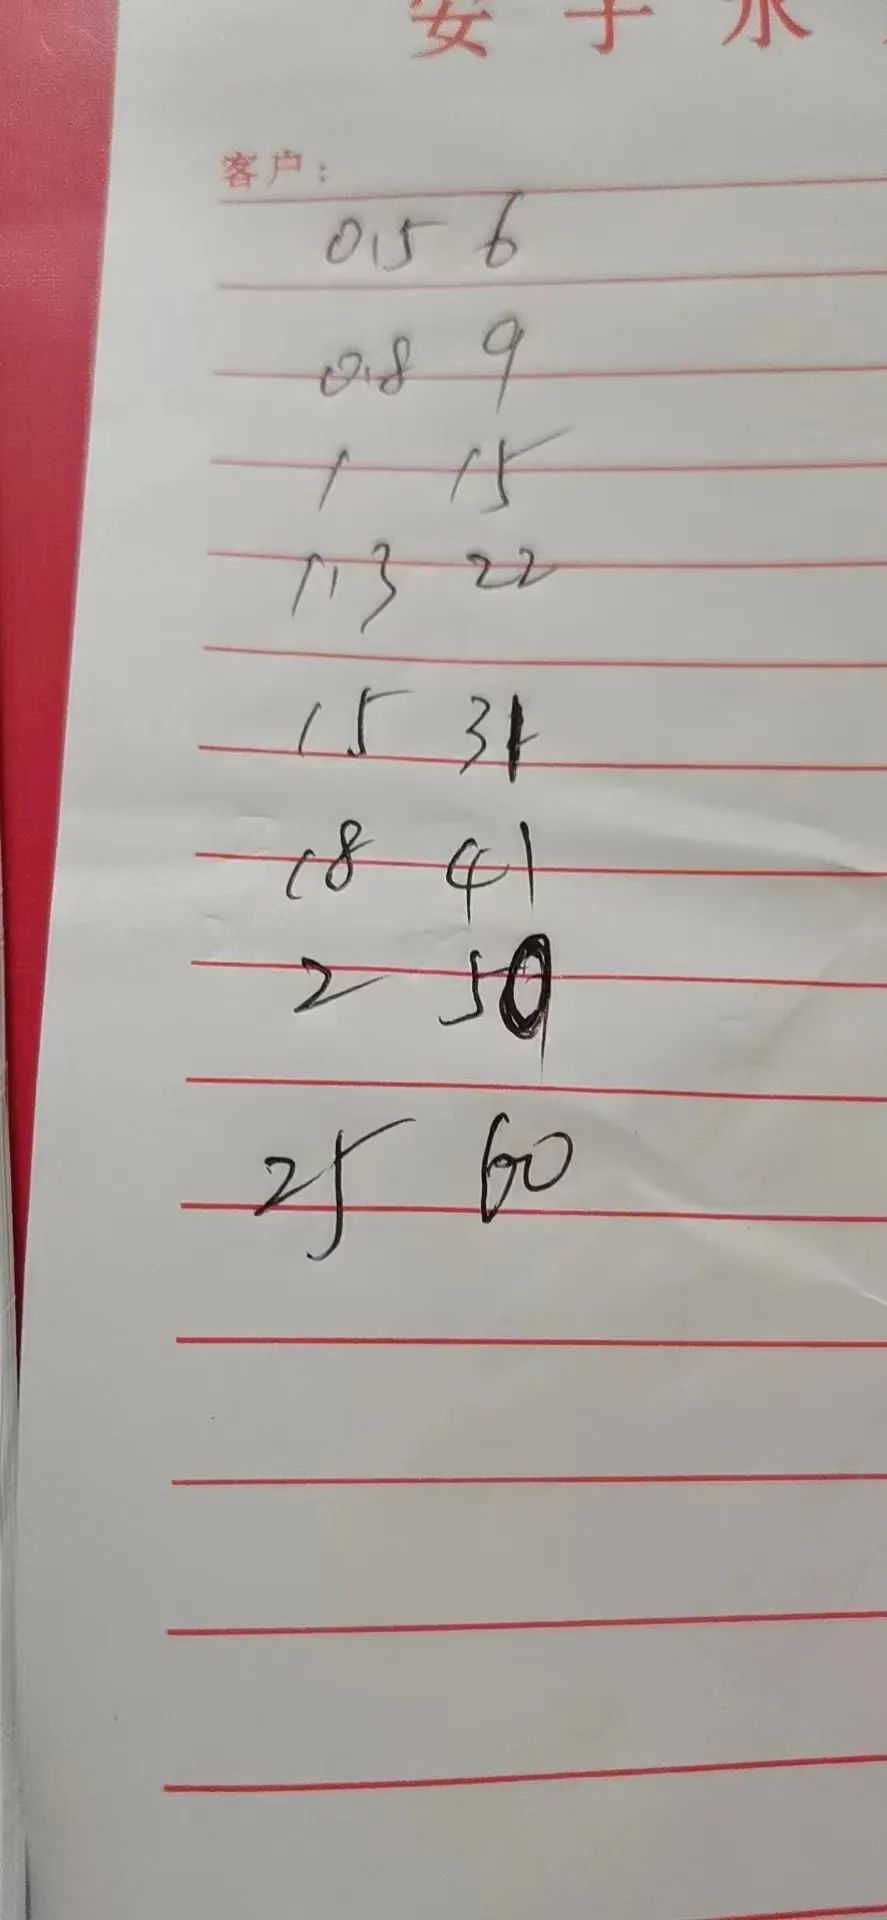 客户：
0.5 6
0.8 9
1 15
1.3 22
15 31
18 41
2 50
25 60